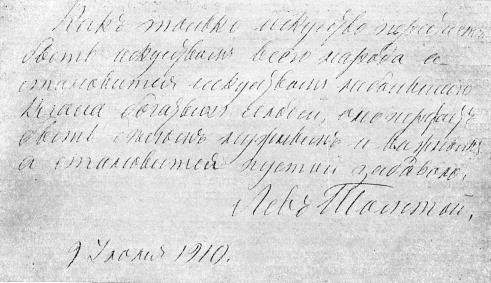 Какъ только искусство перестаетъ
быть искусствомъ всего народа и
становится искусствомъ небольшого
класса богатыхъ людей, оно перестаетъ
быть дѣломъ нужнымъ и важнымъ,
а становится пустой забавой.
Левъ Толстой.
9 Іюля 1910.